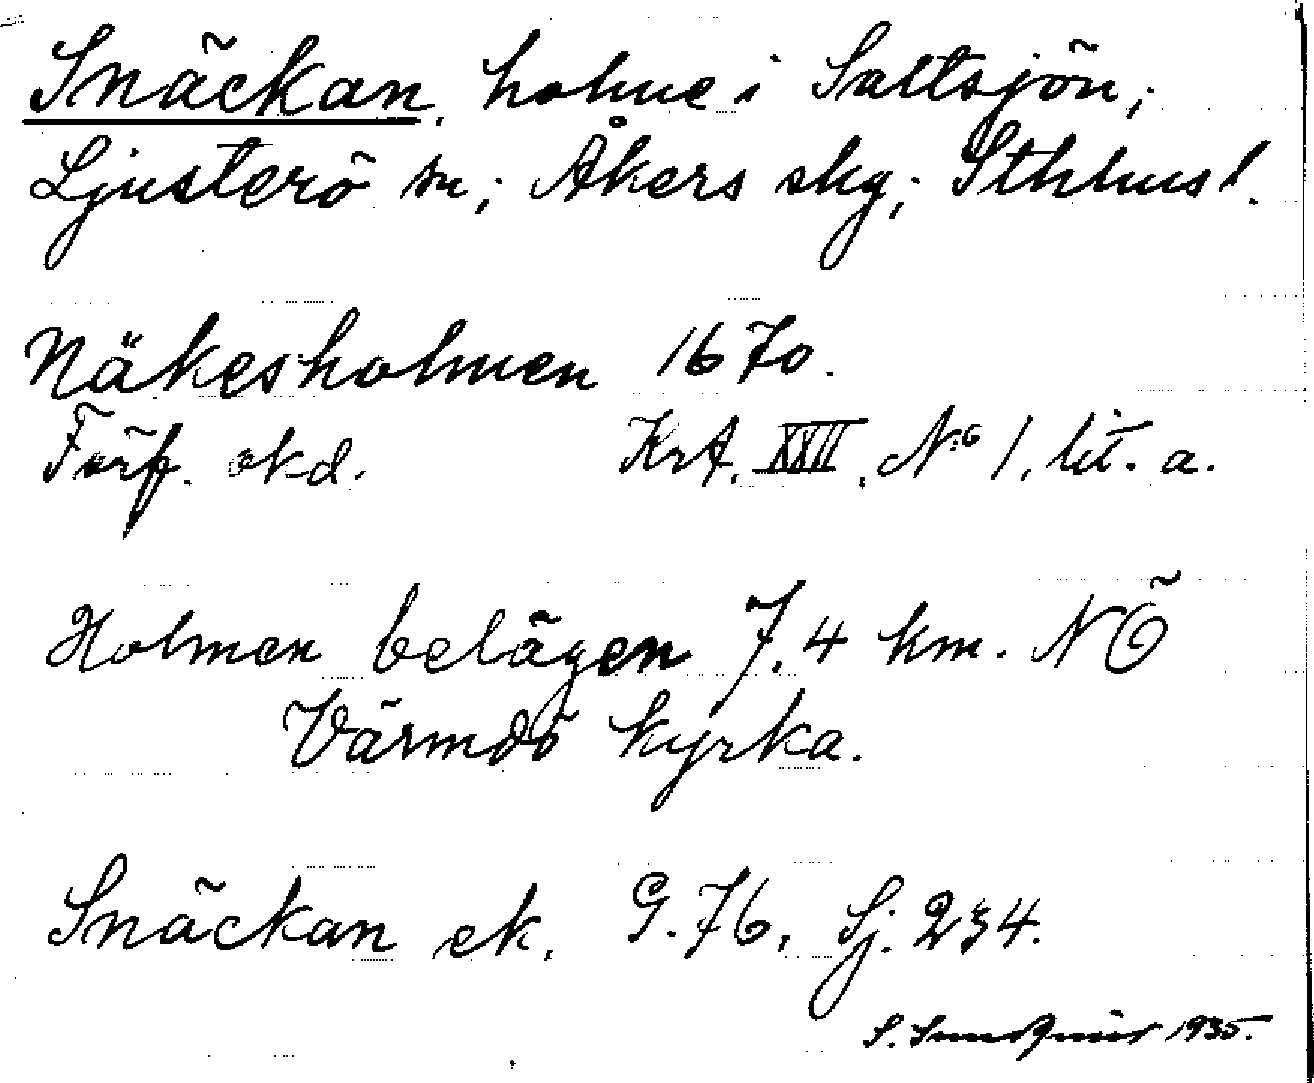 Snäckan, holme i Saltsjön;
Ljusterö sn; Åkers skg; Sthlms l.
Näkesholmen 1670.
Förf. okd. KrA. XXII. No 1. lit. a.
Holmen belägen 7.4 km. NÖ
Värmdö kyrka.
Snäckan ek. G. 76. Sj. 234.
S. Sundqvist 1935.